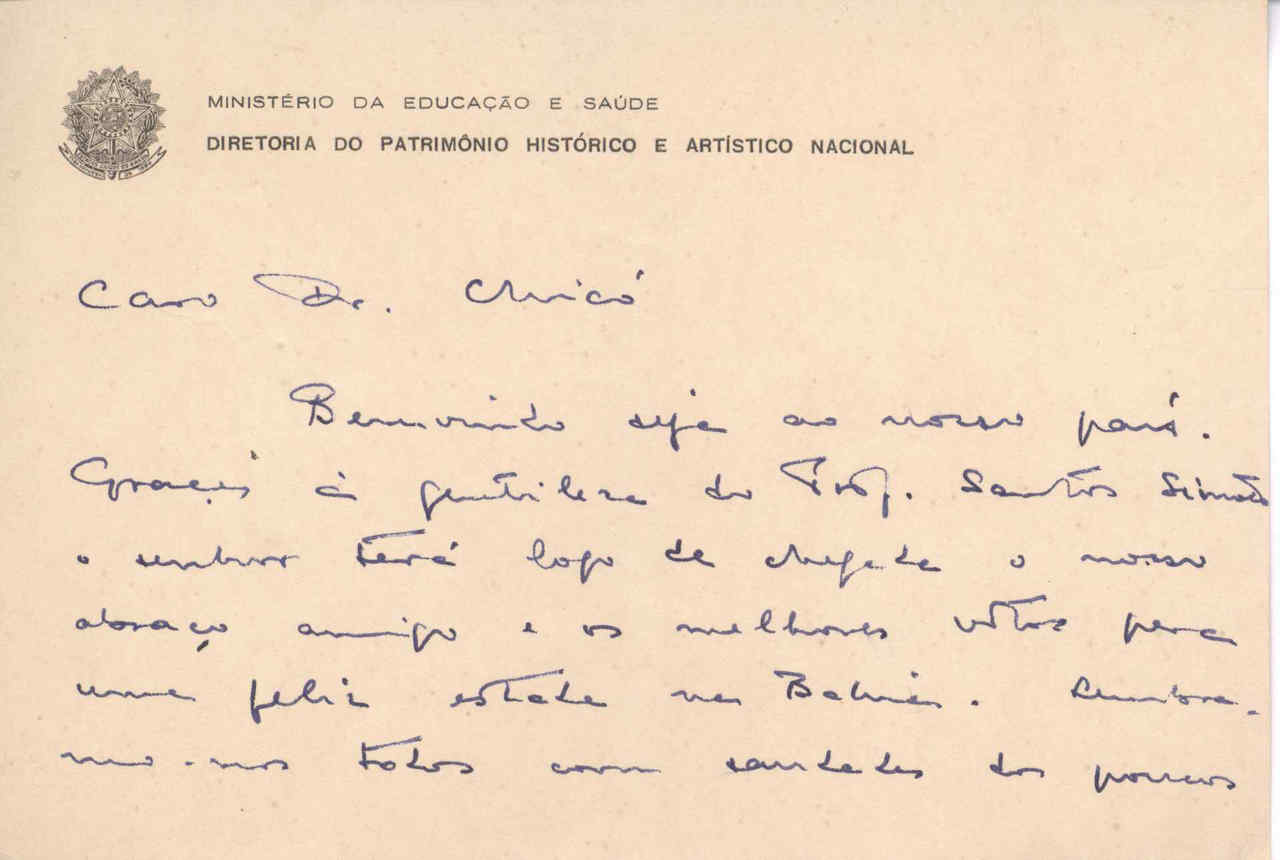 MINISTÉRIO DA EDUCAÇÃO E SAÚDE
DIRETORIA DO PATRIMÔNIO HISTÓRICO E ARTÍSTICO NACIONAL
Caro Dr. Chicó
Benvindo seja ao nosso país.
Graças à gentileza do Prof. Santos Simões
o senhor terá logo de chegada o nosso
abraço amigo e os melhores vótos para
uma feliz estada na Bahia. Lembra-
mo-nos todos com saudades dos poucos